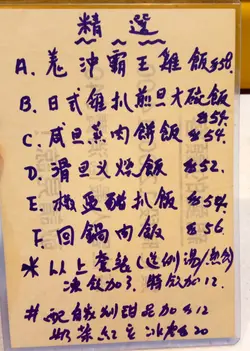 精選
A. 羗沖霸王雞飯 $58.
B. 日式雞扒煎旦大碗飯 $54.
C. 咸旦蒸肉餅飯 $54.
D. 滑旦叉燒飯 $52.
E. 椒盬豬扒飯 $54.
F. 回鍋肉飯 $56
* 以上套裝(送例湯/熱飲)
凍飲加3. 特飲加12.
# 配 甜品加$12
奶茶紅豆冰 $20